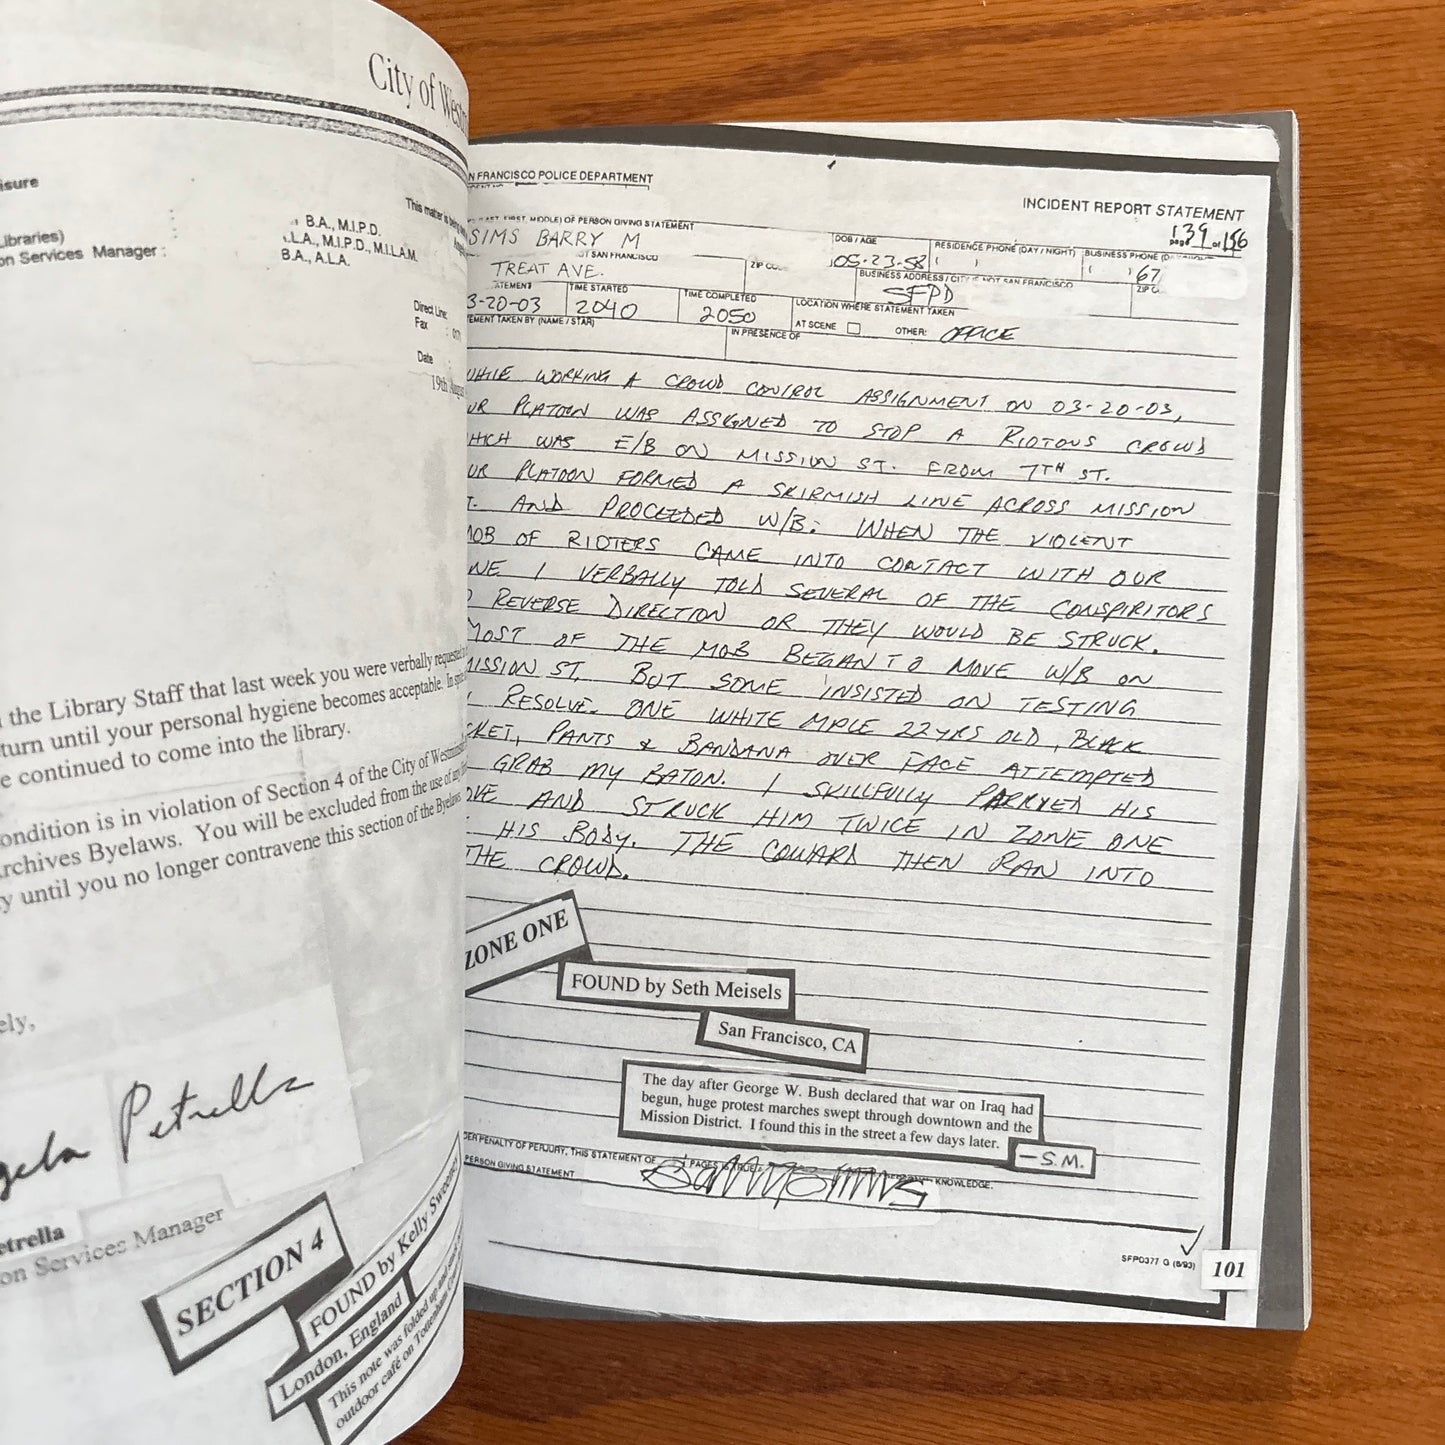 City of
isure
This matter is being
B.A., M.I.P.D.
Libraries)
L.A., M.I.P.D., M.I.L.A.M.
on Services Manager :
B.A., A.L.A.
Direct Line:
Fax
Date
19th
the Library Staff that last week you were verbally requested
turn until your personal hygiene becomes acceptable. In
e continued to come into the library.
ondition is in violation of Section 4 of the City of
rchives Byelaws. You will be excluded from the use of
y until you no longer contravene this section of the Byelaws
ely,
gela Petrella
etrella
on Services Manager
SECTION 4
FOUND by Kelly
London, England
This note was folded up and
outdoor café on Tottenham
N FRANCISCO POLICE DEPARTMENT
INCIDENT REPORT STATEMENT
page 139 of 156
FIRST, MIDDLE) OF PERSON GIVING STATEMENT
SIMS BARRY M
DOB / AGE
05-23-58
RESIDENCE PHONE (DAY / NIGHT)
( )
BUSINESS PHONE
( ) 67
OT SAN FRANCISCO
TREAT AVE.
ZIP
BUSINESS ADDRESS / CITY IF NOT SAN FRANCISCO
SFPD
ZIP
ATEMENT
3-20-03
TIME STARTED
2040
TIME COMPLETED
2050
LOCATION WHERE STATEMENT TAKEN
AT SCENE
OTHER: OFFICE
EMENT TAKEN BY (NAME / STAR)
IN PRESENCE OF
WHILE WORKING A CROWD CONTROL ASSIGNMENT ON 03-20-03,
UR PLATOON WAS ASSIGNED TO STOP A RIOTOUS CROWD
HICH WAS E/B ON MISSION ST. FROM 7TH ST.
UR PLATOON FORMED A SKIRMISH LINE ACROSS MISSION
T. AND PROCEEDED W/B. WHEN THE VIOLENT
MOB OF RIOTERS CAME INTO CONTACT WITH OUR
NE I VERBALLY TOLD SEVERAL OF THE CONSPIRITORS
O REVERSE DIRECTION OR THEY WOULD BE STRUCK.
MOST OF THE MOB BEGAN TO MOVE W/B ON
MISSION ST. BUT SOME INSISTED ON TESTING
RESOLVE. ONE WHITE MALE 22YRS OLD, BLACK
CKET, PANTS & BANDANA OVER FACE ATTEMPTED
GRAB MY BATON. I SKILLFULLY PARRYED HIS
OVE AND STRUCK HIM TWICE IN ZONE ONE
HIS BODY. THE COWARD THEN RAN INTO
THE CROWD.
ZONE ONE
FOUND by Seth Meisels
San Francisco, CA
The day after George W. Bush declared that war on Iraq had
begun, huge protest marches swept through downtown and the
Mission District. I found this in the street a few days later.
—S.M.
DER PENALTY OF PERJURY, THIS STATEMENT OF PAGES IS TRUE KNOWLEDGE.
PERSON GIVING STATEMENT
SFPD377 G (8/93)
101